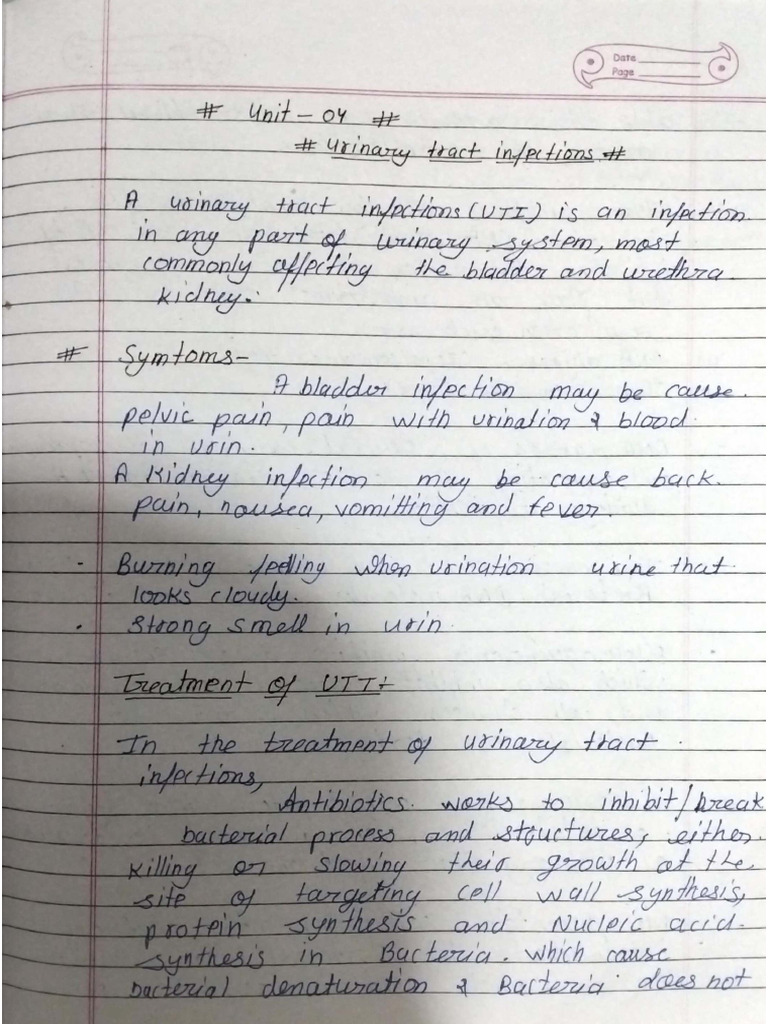 Date
Page
# Unit - 04 #
# Urinary tract infections #
A urinary tract infections (UTI) is an infection
in any part of urinary system, most
commonly affecting the bladder and urethra
kidney.
# Symtoms-
A bladder infection may be cause
pelvic pain, pain with urination & blood
in urin.
A kidney infection may be cause back
pain, nousea, vomitting and fever.
· Burning feelling when urination urine that
looks cloudy.
· Strong smell in urin
Treatment of UTI:
In the treatment of urinary tract
infections,
Antibiotics works to inhibit/break
bacterial process and structures, either
killing or slowing their growth at the
site of targeting cell wall synthesis,
protein synthesis and Nucleic acid
synthesis in Bacteria. which cause
bacterial denaturation & Bacteria does not